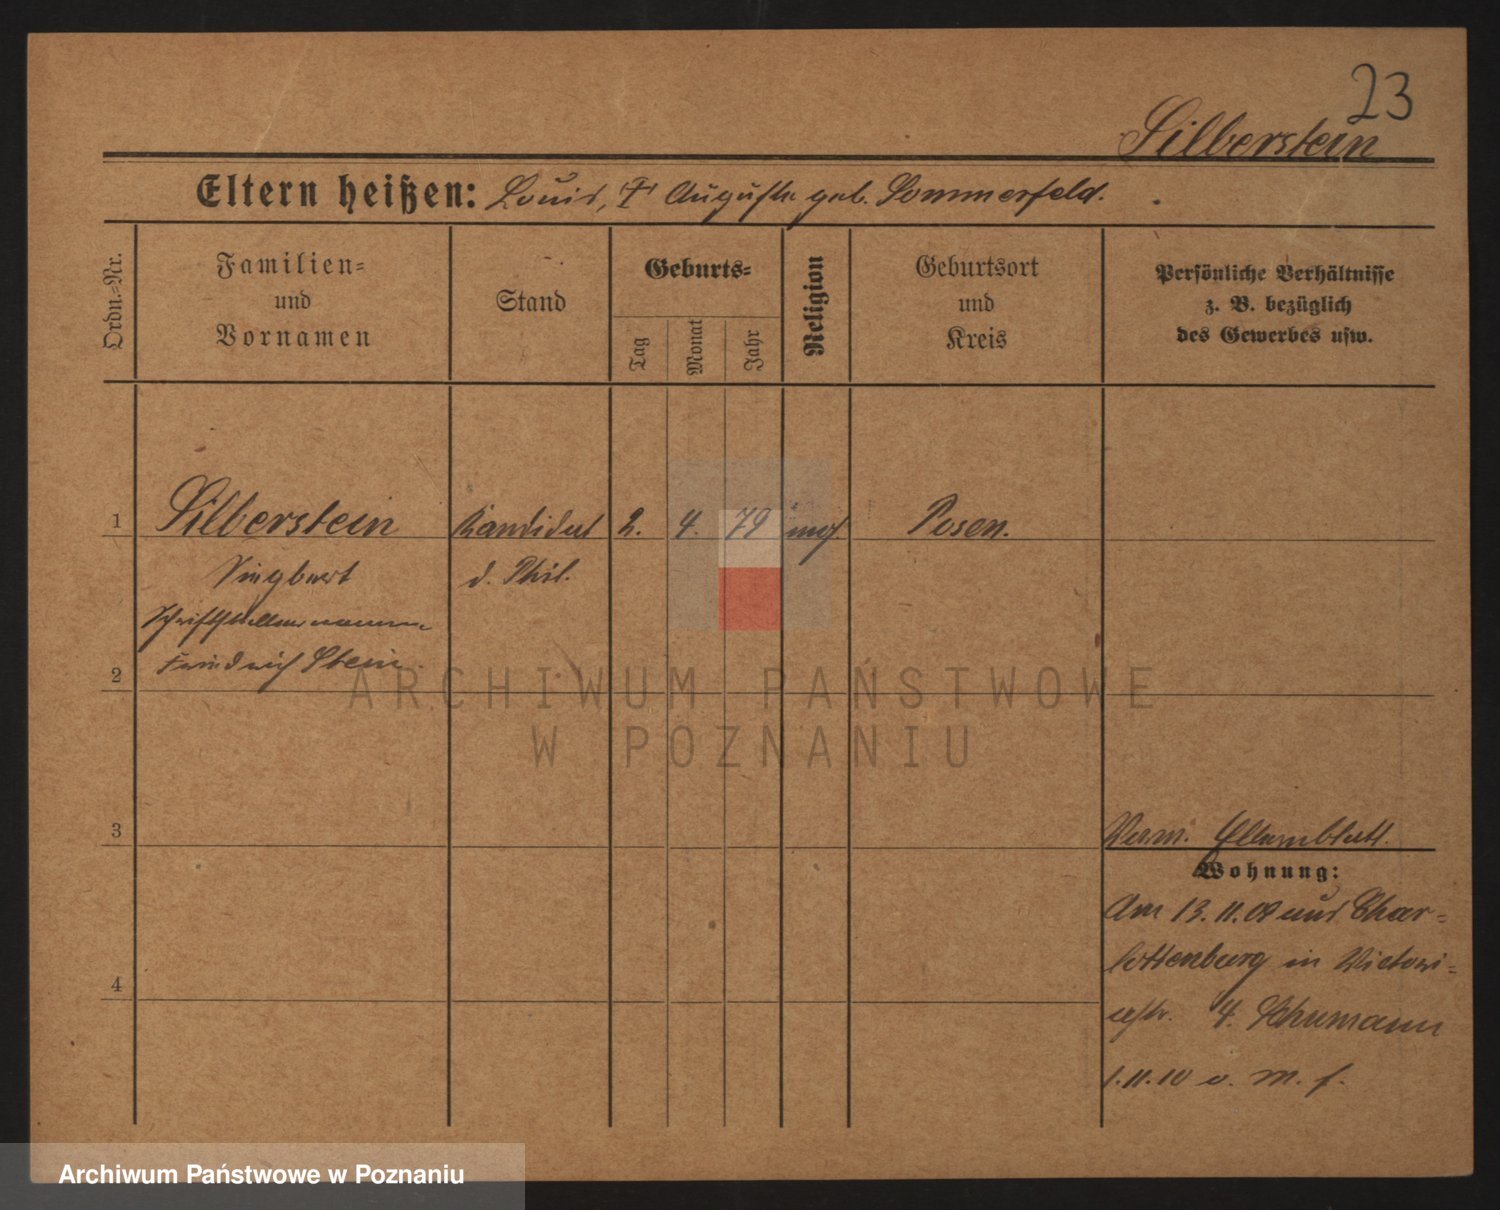 23
Silberstein
Eltern heißen: Louis, † Auguste geb. Sommerfeld.
Ordn.-Nr.
Familien-
und
Vornamen
Stand
Geburts-
Tag
Monat
Jahr
Religion
Geburtsort
und
Kreis
Persönliche Verhältnisse
z. B. bezüglich
des Gewerbes usw.
1 Silberstein Kandidat 2. 4. 79 mos. Posen.
Siegbert d. Phil.
Schriftstellername
2 Friedrich Stein.
3
Verm. Elternblatt.
Wohnung:
Am 13.11.09 aus Char-
lottenburg in Victori-
astr. 4. Schumann
4
1.11.10 v. M. f.
ARCHIWUM PAŃSTWOWE
W POZNANIU
Archiwum Państwowe w Poznaniu